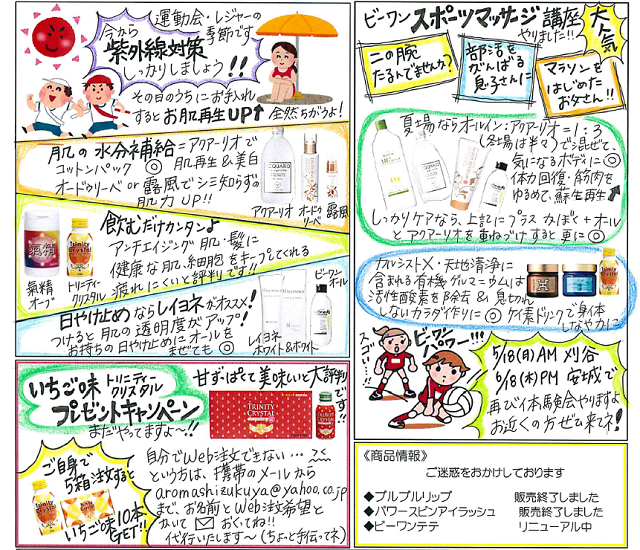 運動会・レジャーの
季節です
今から
紫外線対策
しっかりしましょう!!
その日のうちにお手入れ
するとお肌再生UP↑全然ちがうよ!
肌の水分補給=アクアーリオで
コットンパック◎ 肌再生&美白
オードゥリーベor露風でシミ知らずの
肌力UP!!
アクアーリオ オードゥリーベ 露風
飲むだけカンタンよ
アンチエイジング肌・髪に
健康な肌、細胞をキープしてくれる
疲れにくいと評判です!!
氣精オーブ
トリニティークリスタル
日やけ止めならレイヨネがオススメ!
つけると肌の透明度がアップ!
お持ちの日やけ止めにオールを
まぜても◎
レイヨネ
ホワイト&ホワイト
ビーワンオール
いちご味トリニティークリスタル
プレゼントキャンペーン
まだやってますよ〜!!
甘ずっぱくて美味いと大評判です!!
TRINITY
CRYSTAL
ご自身で
5箱注文すると
いちご味10本
GET!!
自分でWeb注文できない…
という方は、携帯のメールから
aromashizukuya@yahoo.co.jp
まで、お名前とWeb注文希望と
かいて✉おくってね!!
代行いたします〜(ちょっと手伝ってネ)
ビーワンスポーツマッサージ講座
やりました!!
大人気
二の腕
たるんでませんか?
部活を
がんばる
息子さんに
マラソンを
はじめた
お父さん!!
夏場ならオールイン:アクアーリオ=1:3
(冬場は半々)で混ぜて、
気になるボディに◎
体力回復・筋肉を
ゆるめて、蘇生再生
しっかりケアなら、上記にプラスかほど+オール
とアクアーリオを重ねづけすると更に◎
カルシストX・天地清浄に
含まれる有機ゲルマニウムは
活性酸素を除去&息切れ
しないカラダ作りに◎ケイ素ドリンクで身体
しなやかに
スゴーい!!
ビーワン
パワー!!!
5/18(月)AM 刈谷
6/18(木)PM 安城で
再び体験会やりますよ
お近くの方ぜひ来てネ!
《商品情報》
ご迷惑をおかけしております
◆プルプルリップ 販売終了しました
◆パワースピンアイラッシュ 販売終了しました
◆ビーワンテテ リニューアル中